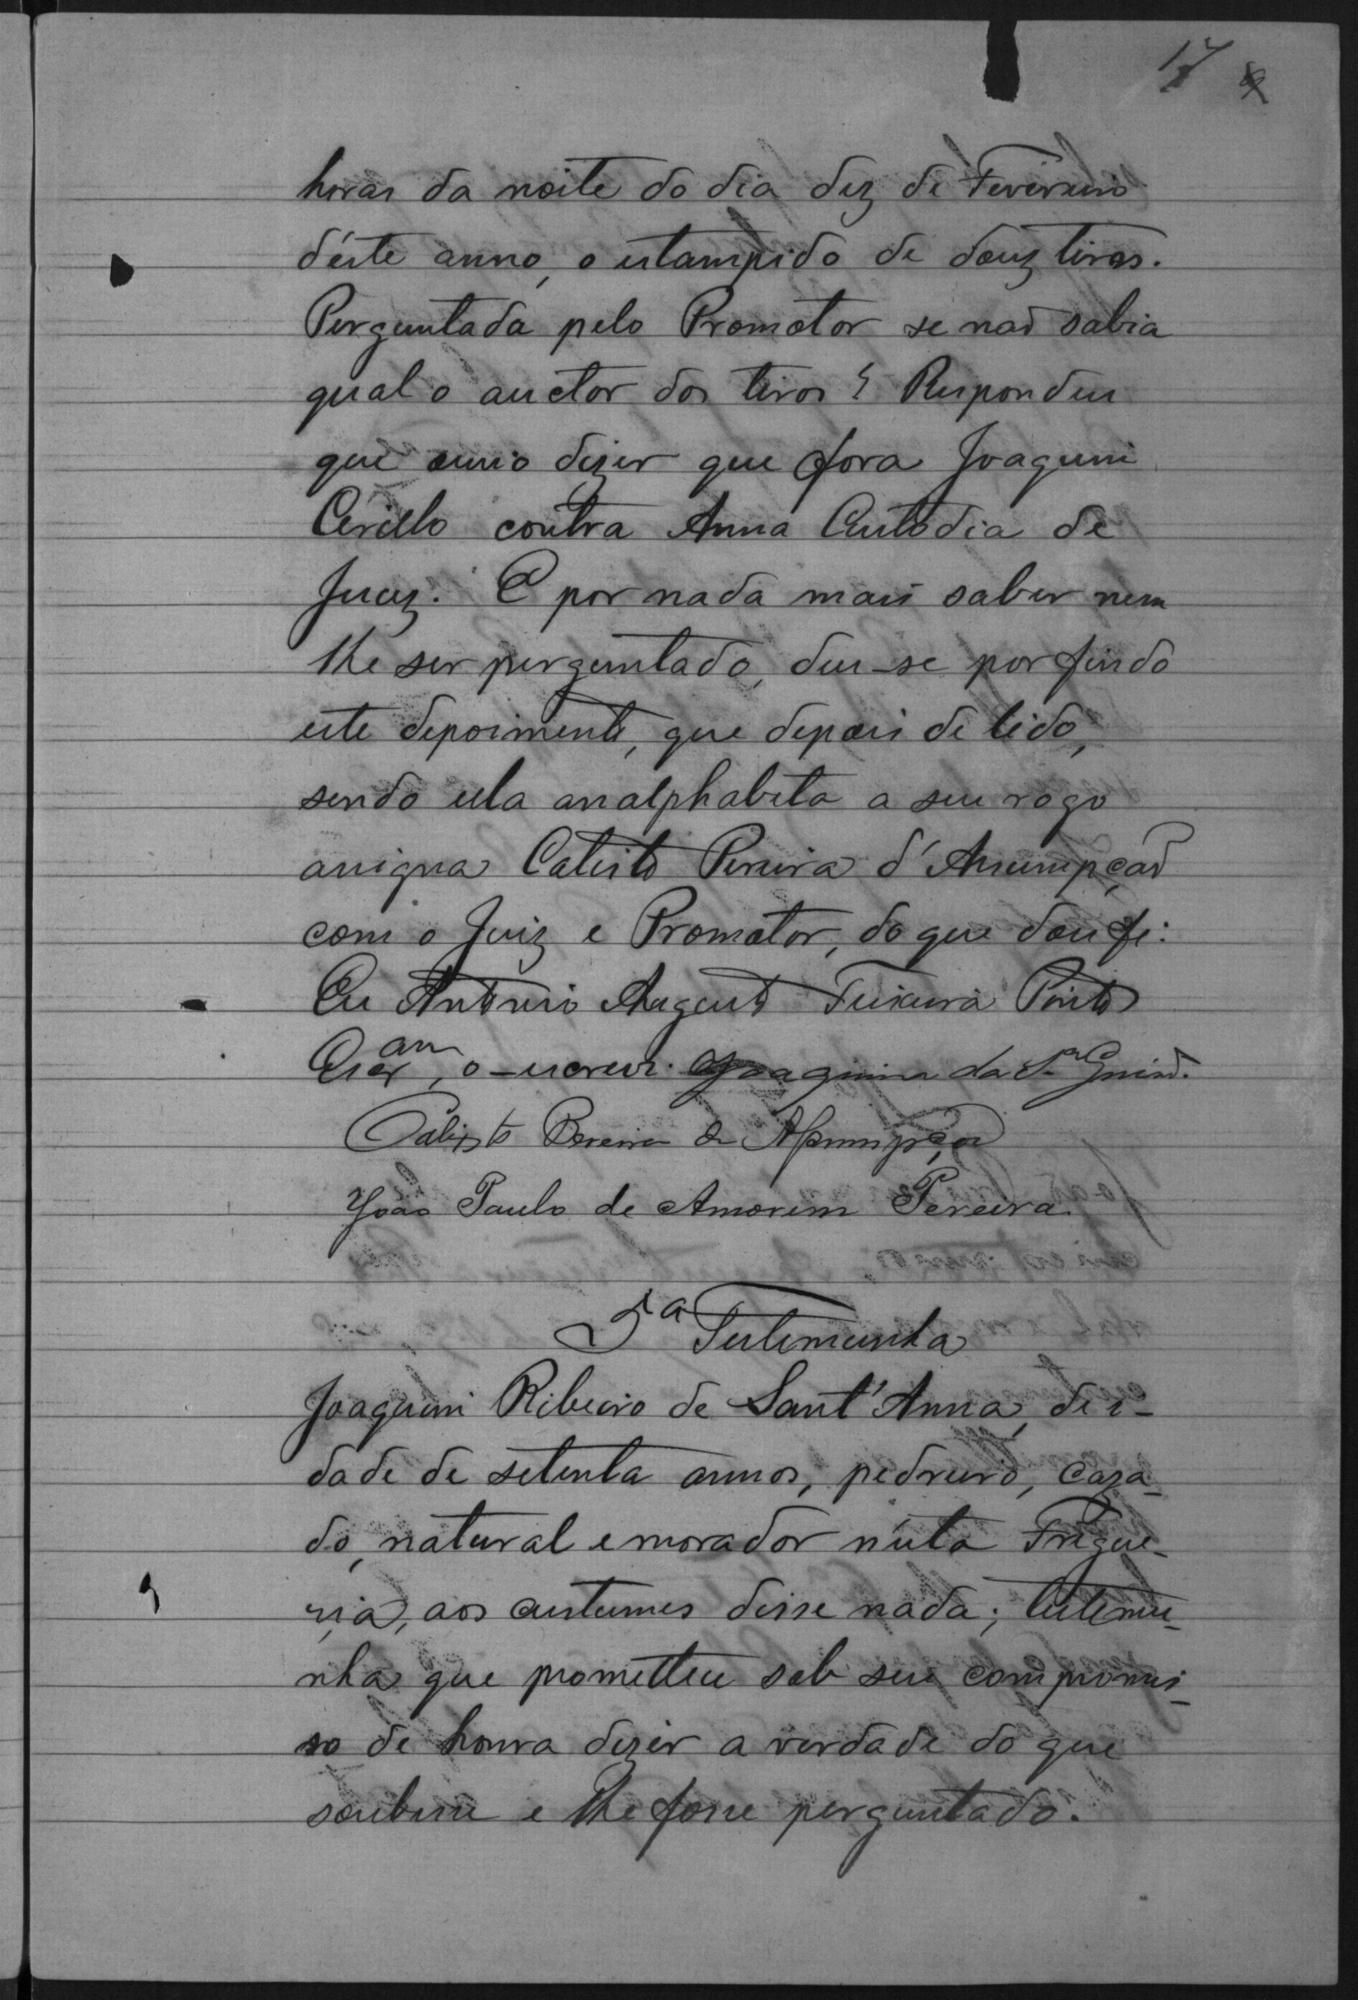 17
horas da noite do dia dez de Fevereiro
d'éste anno, o estampido de douz tiros.
Perguntada pelo Promotor se naõ sabia
qual o auctor dos tiros? Respondeu
que ouvio dizer que fora Joaquim
Cerillo contra Anna Custodia de
Juez. E por nada mais saber nem
lhe ser perguntado, deu-se por findo
este depoimento, que depois de lido,
sendo ella analphabeta a seu rogo
assigna Calisto Pereira d'Assumpçaõ
com o Juiz e Promotor, do que dou fé:
Eu Antonio Augusto Teixeira Pinto
Escr.am, o-escrevi. Joaquim da S.a
Calixto Pereira de Assumpçaõ
João Paulo de Amorim Pereira
5a Testemunha
Joaquim Ribeiro de Sant'Anna, de i-
dade de setenta annos, pedreiro, caza-
do, natural e morador n'ésta Fregue-
zia, aos custumes disse nada; testemu-
nha que prometteu sob seu compromis-
so de honra dizer a verdade do que
soubesse e lhe fosse perguntado.